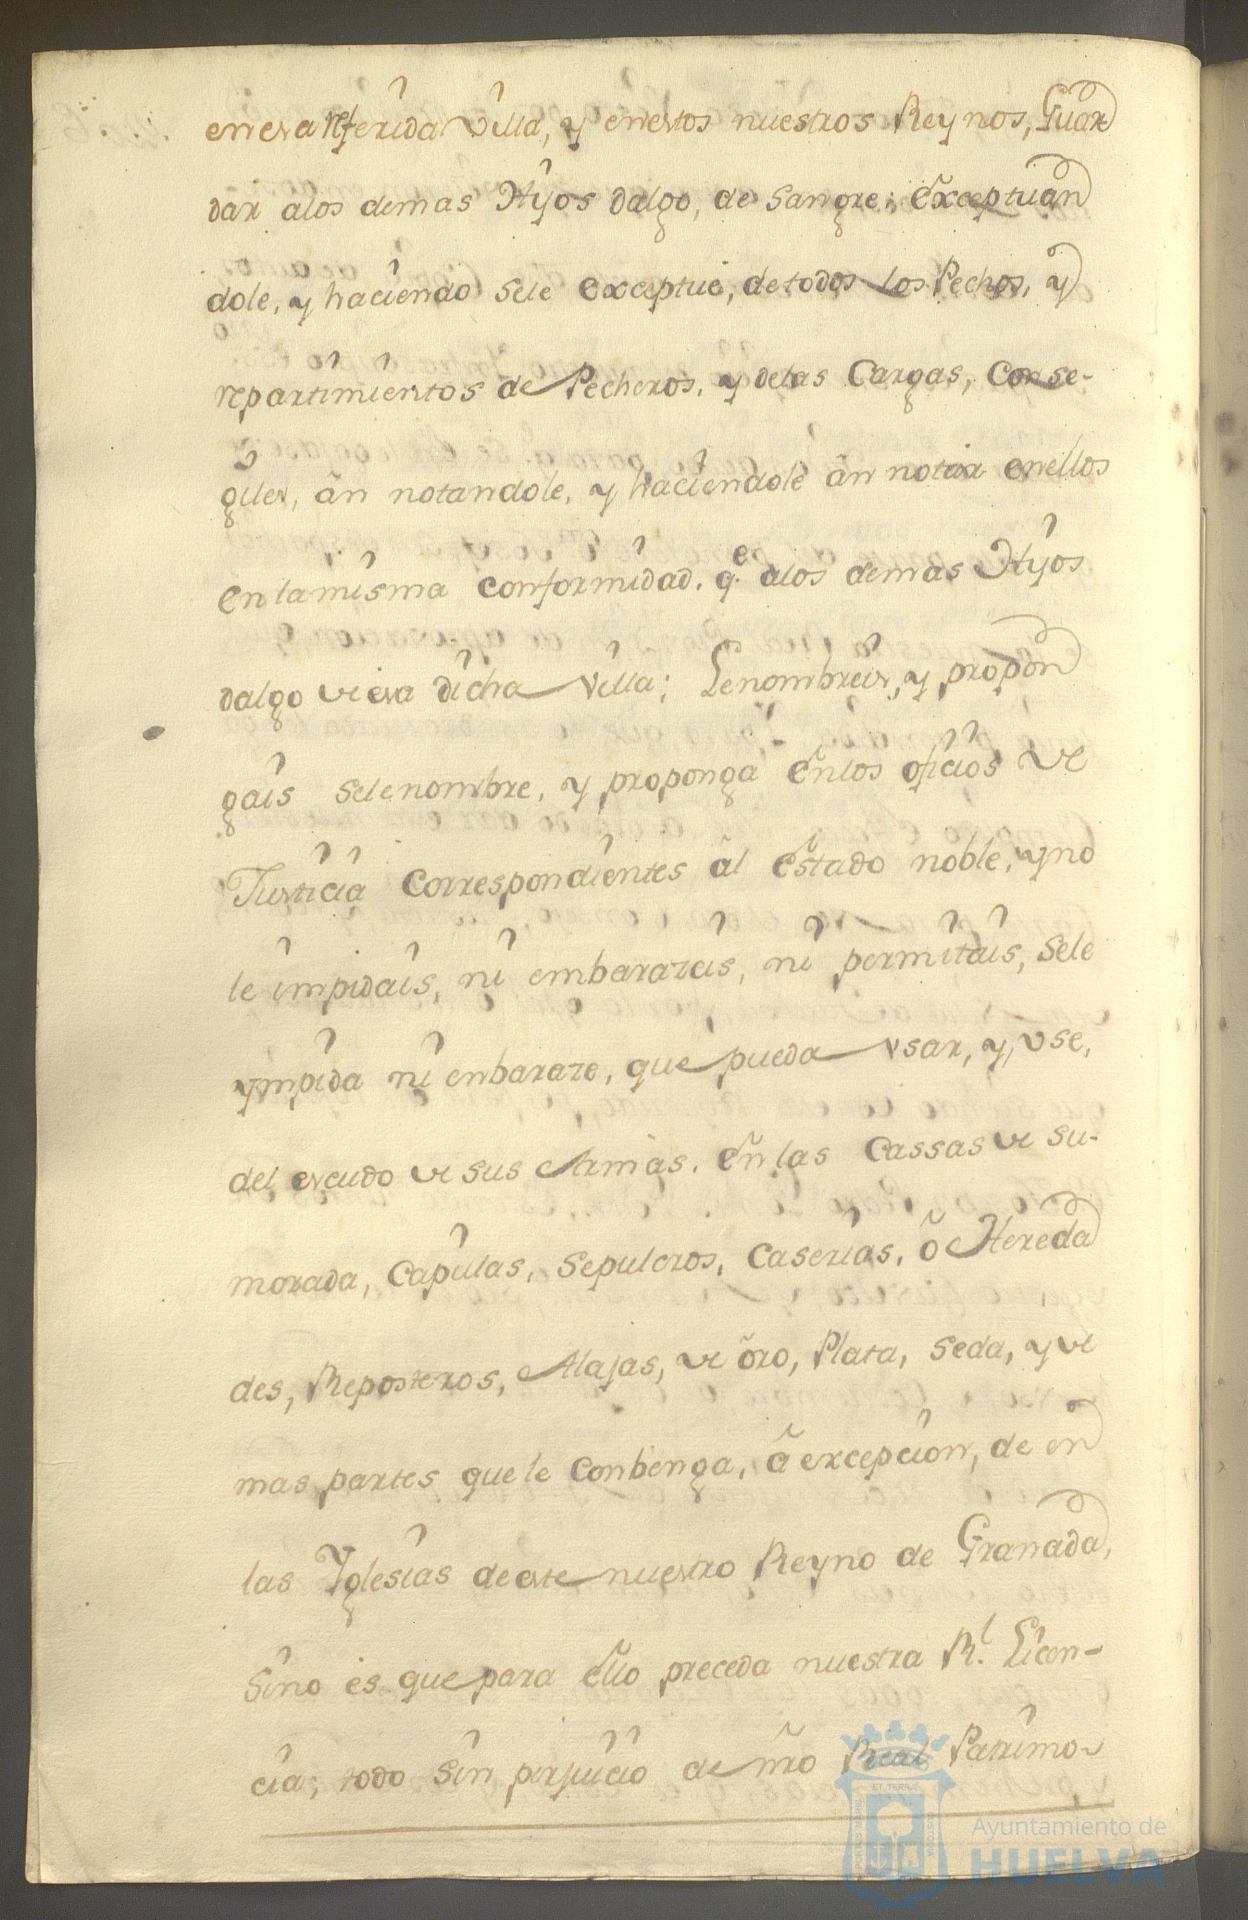 en esa referida Villa, y en estos nuestros Reynos, Guar
dar a los demas Hijos dalgo, de Sangre; exceptuan
dole, y haciendo se le exceptue, de todos los Pechos, y
repartimientos de Pecheros, y de las Cargas, Conse-
giles, añnotandole, y haciendole añnotar en ellos
en la misma conformidad, q.e a los demas Hijos
dalgo de esa dicha Villa; Le nombreis, y propon
gais se le nombre, y proponga en los oficios de
Justicia correspondientes al estado noble, y no
le impidais, ni embarazeis, ni permitais, se le
ympida ni enbaraze, que pueda usar, y, use,
del escudo de sus Armas, en las Cassas de su-
morada, Capillas, Sepulcros, Caserias, o Hereda
des, Reposteros, Alajas, de oro, Plata, Seda, y de
mas partes que le conbenga, a excepcion, de en
las Yglesias de este nuestro Reyno de Granada,
Sino es que para ello preceda nuestra R.l Licen-
cia; todo sin perjuicio de ñro Real Patrimo-
Ayuntamiento de
HUELVA